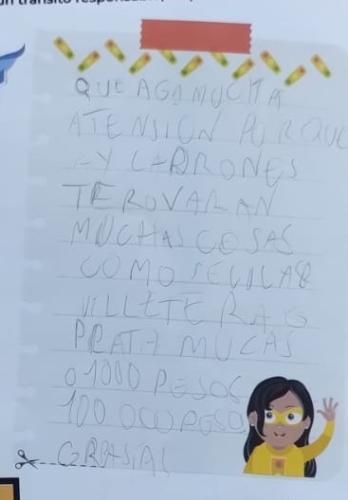 QUE AGA MUCHA
ATENSION PORQUE
AY LADRONES
TEROVARAN
MUCHAS COSAS
COMO SELULAR
VILLETERAS
PLATA MUCAS
0 1000 PESOS
100 000 PESO
GRASIAS